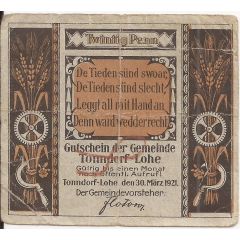 Twintig Penn
De Tieden sünd swoar,
De Tieden sünd slecht,
Leggt all mit Hand an,
Denn ward wedder recht!
Gutschein der Gemeinde
Tonndorf-Lohe
Gültig bis einen Monat
nach öffentl. Aufruf!
Tonndorf-Lohe den 30. März 1921.
Der Gemeindevorsteher: